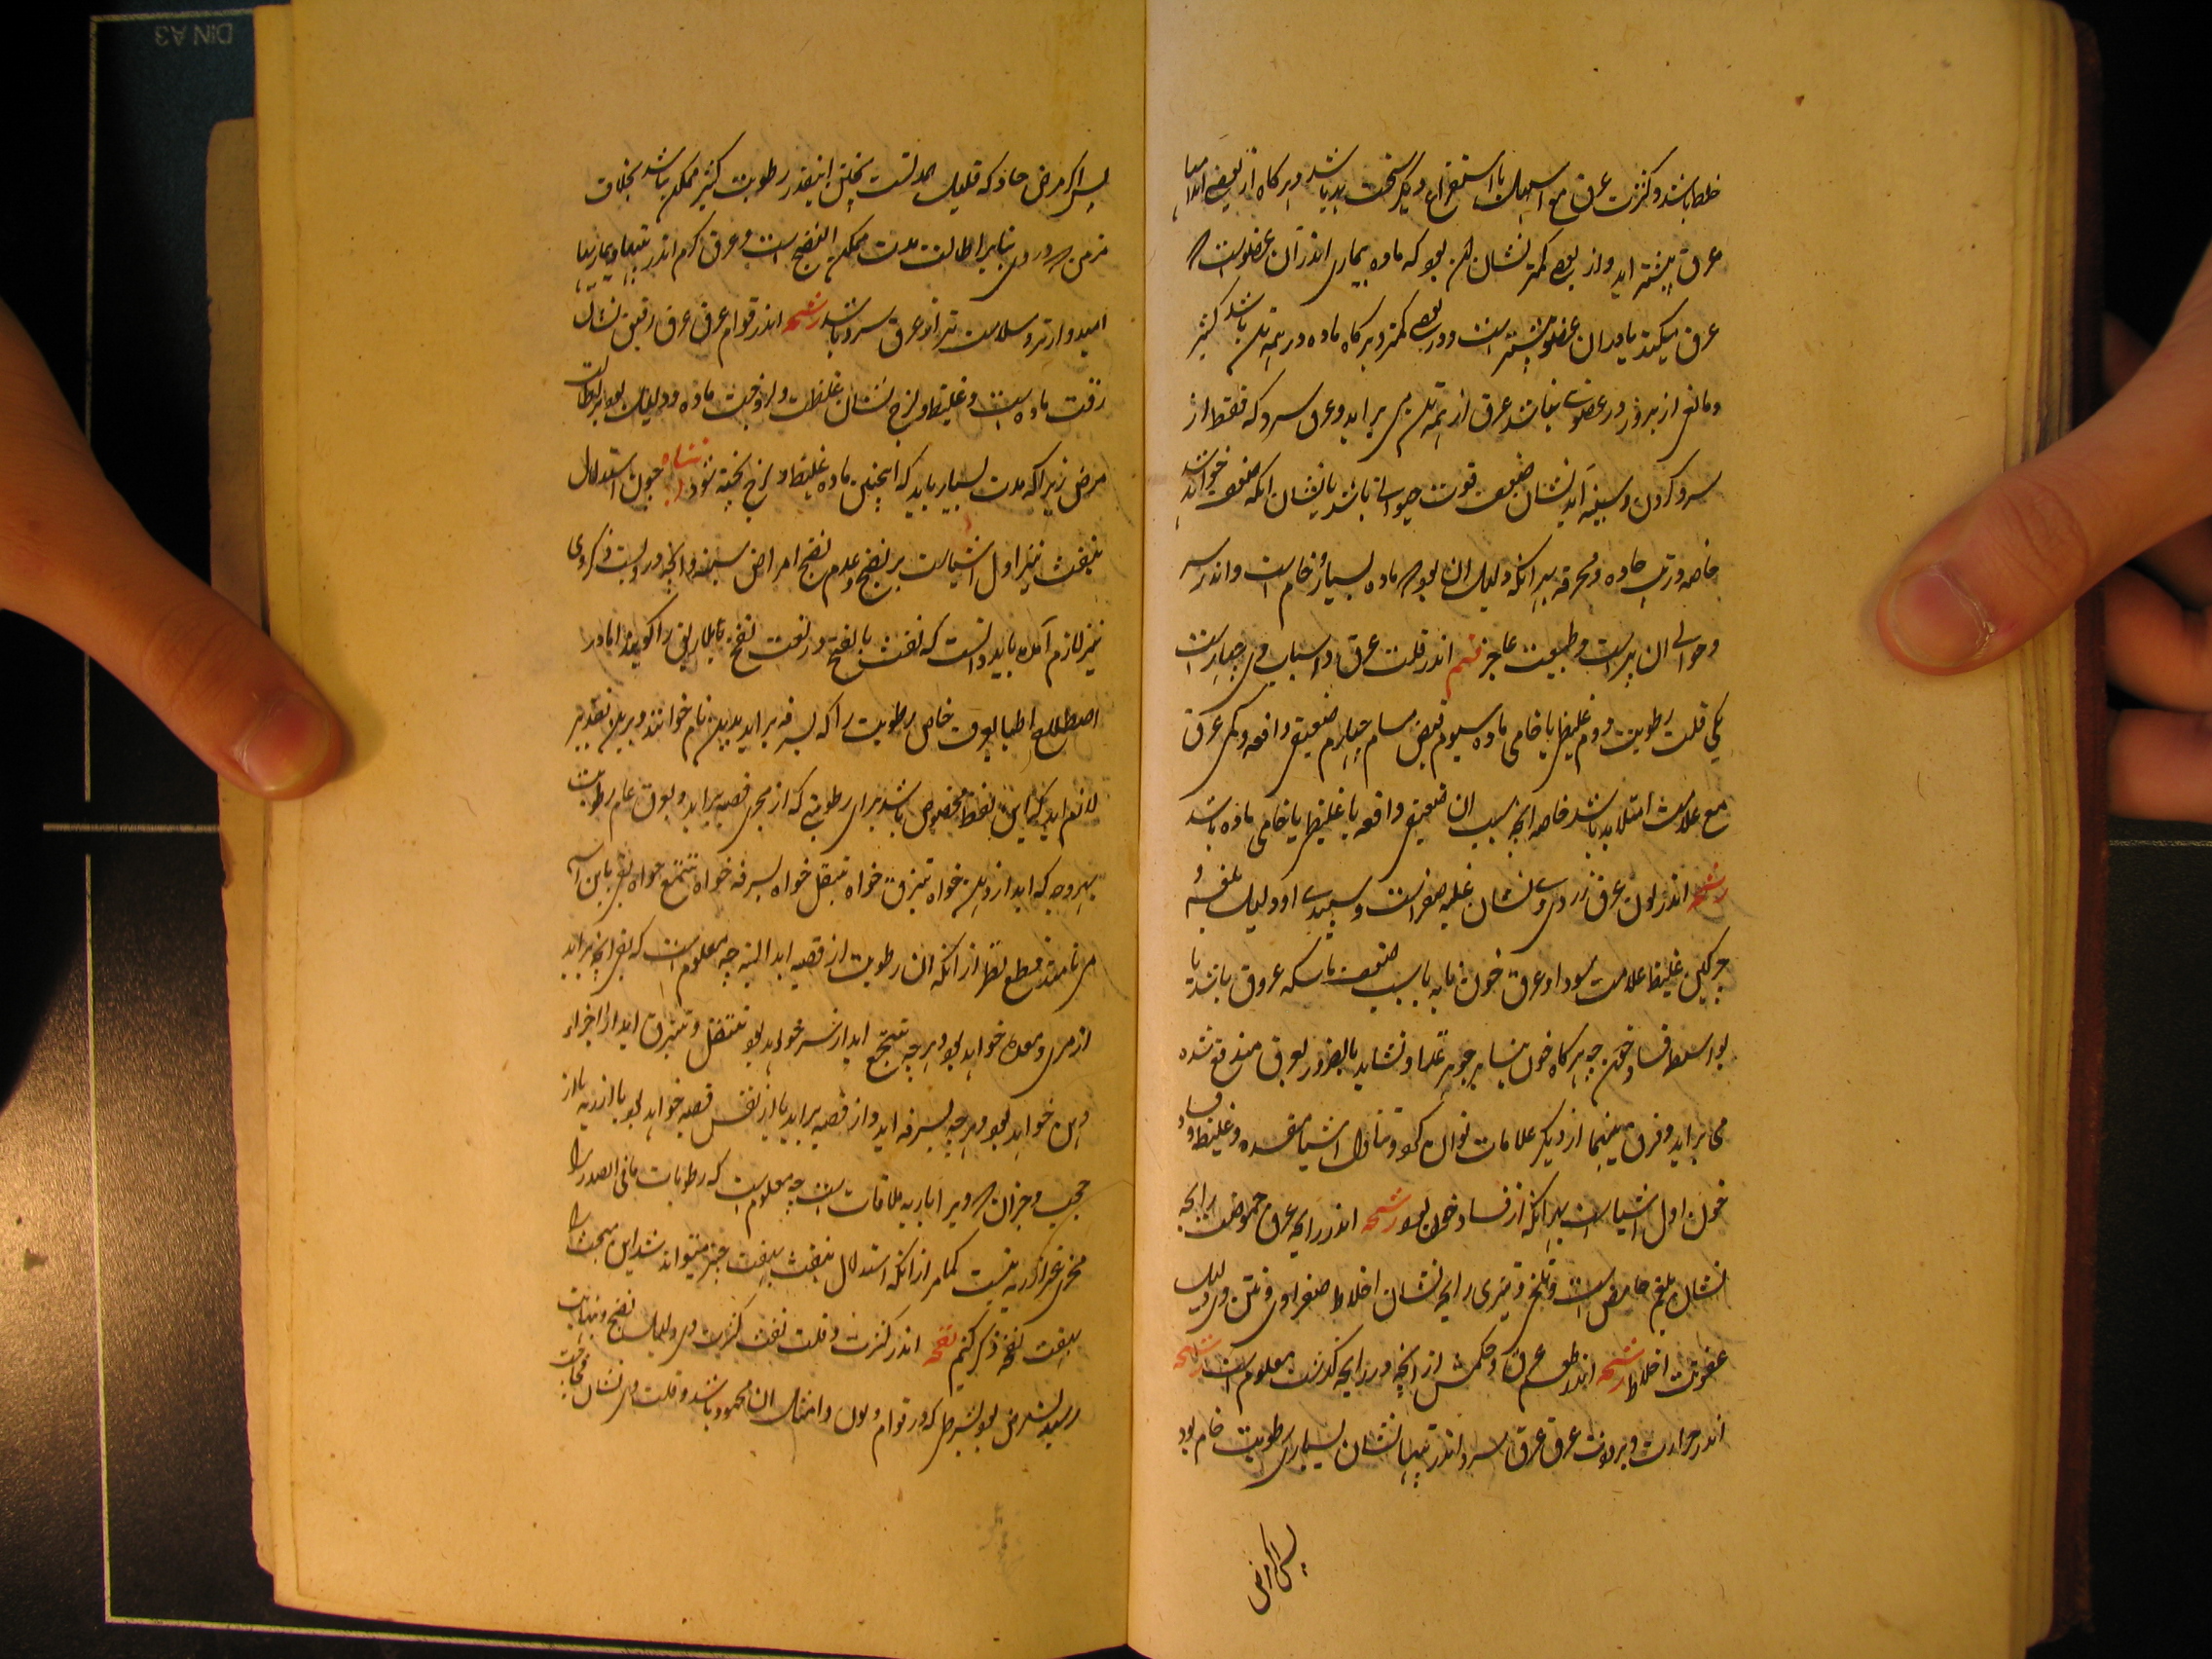 خلط باشد و کثرت عرق مع اسهال یا استفراغ دیگر سخت بد باشد و هرگاه از بعضی اعضا
عرق بیشتر اید و از بعضی کمتر نشان ان بود که ماده بیماری اندر آن عضو است که
عرق میکند یا در ان عضو بیشتر است و در بعضی کمتر و هرگاه ماده در همه تن باشد کثیر
و مانعی از بروز در عضوی نباشد عرق از همه تن می براید و عرق سرد که فقط از
سر و کردن و سینه اید نشان ضعف قوت حیوانی باشد یا نشان انکه ضعف خواهد شد
خاصه در تب حاده و محرقه بهر انکه دلیل ان بود که ماده بسیار و خام است و اندر سر
و حوالی ان بر است و طبیعت عاجز اندر قلت عرق و اسباب وی چهار است
یکی قلت رطوبت دوم غلیظی یا خامی ماده سیوم قبض مسام چهارم ضعیفی دافعه و کمی عرق
مع علامت امتلا بد باشد خاصه انچه بسبب ان ضعیفی دافعه یا غلیظی یا خامی ماده باشد
رشحه اندر لون عرق زردی وی نشان غلبه صفراست و سپیدی او دلیل بلغم و
چرکین غلیظ علامت سودا و عرق خون نما یا بسبب ضعف ماسکه عروق باشد یا
بواسطه فساد خون چه هرگاه خون بنابر جوهر غذا و نشاید بالضرور بعرق مندفع شده
می براید و فرق بینهما از دیکر علامات توان کرد و تناول اشیا مفسده و غلیظ و
خون اول اشیا است بهر انکه از فساد خون بود رشحه اندر رایحه عرق حموضت رایحه
نشان بلغم حامض است و تلخی و تیزی رایحه نشان اخلاط صفراوی و نتن وی دلیل
عفونت اخلاط رشحه اندر طعم عرق و حکمش از انچه در رایحه کذشت معلوم است رشحه
اندر حرارت و برودت عرق عرق سرد اندر تبها نشان بسیاری رطوبت خام بود
پس اگر مرض
پس اگر مرض حاد که قلیل المدتست پختن اینقدر رطوبت کثیر ممکن باشد بخلاف
مزمن که در وی بنابر اطالت مدت ممکن النضج است و عرق کرم اندر تبها و بیماریها
امیدوارتر و سلامت تر از عرق سرد باشد رشحه اندر قوام عرق عرق رقیق نشان
رقت ماده است و غلیظ و لزج نشان غلظت و لزوجت ماده و دلیل بود بر اطالت
مرض زیرا که مدت بسیار باید که اینچنین ماده غلیظ و لزج پخته شود چون استدلال
بنفث نیز اول اشیا است بر نضج و عدم نضج امراض سینه و الات وی پس ذکر وی
نیز لازم آمد باید دانست که نفث بالفتح در لغت نفخ یا قلیل ریق را کویند اما در
اصطلاح اطبا بعرف خاص رطوبت را که بسرفه براید بدین نام خوانند و برین تقدیر
لازم اید که این لفظ مخصوص باشد برای رطوبتی که از مجری قصبه براید و بعرف عام رطوبت
بهر وجه که اید از دهن خواه ببزق خواه بتفل خواه بسرفه خواه بتنخع خواه بقی باین اسم
می نامند قطع نظر از انکه ان رطوبت از قصبه اید البته چه معلوم است که بقی انچه براید
از مری و معده خواهد بود و هر چه بتنخع اید از سر خواهد بود و بتفل و بتبزق اید از اجزاء
دهن خواهد بود و هر چه بسرفه اید و از قصبه براید یا از نفس قصبه خواهد بود یا از ریه یا از
حجب و جز ان که ویرا با ریه ملاقات است چه معلوم است که رطوبات ما فی الصدر را
مخرجی غیر از ریه نیست کما مر از انکه استدلال بنفث بهفت چیز میتواند شد این مبحث را
بهفت نفخه ذکر کنیم نفخه اندر کثرت و قلت نفث کثرت وی دلیل نضج و بنهایت
رسیدن مرض بود بشرطی که در قوام و لون و امثال ان محمود باشد و قلت وی نشان فجاجت